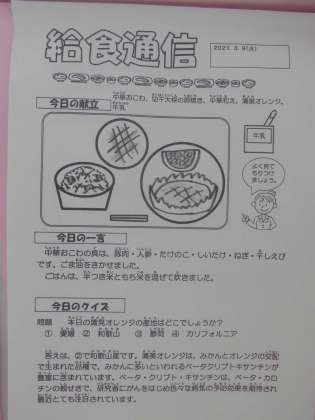 給食通信
2021.3.9(火)
今日の献立
中華おこわ、切干大根の卵焼き、中華和え、清美オレンジ、
牛乳
牛乳
よく見て
もりつけ
ましょう。
今日の一言
中華おこわの具は、豚肉・人参・たけのこ・しいたけ・ねぎ・干しえび
です。ごま油をきかせました。
ごはんは、半つき米ともち米を混ぜて炊きました。
今日のクイズ
問題　本日の清見オレンジの産地はどこでしょうか?
① 愛媛　② 和歌山　③ 静岡　④ カリフォルニア
答えは、②で和歌山産です。清美オレンジは、みかんとオレンジの交配
で生まれた品種で、みかんに多いといわれるベータクリプトキサンチンが
豊富に含まれています。ベータ・クリプト・キサンチンは、ベータ・カロ
チンの親せきで、研究者にがんをはじめ色々な病気の予防効果を期待され
最近とても注目されています。